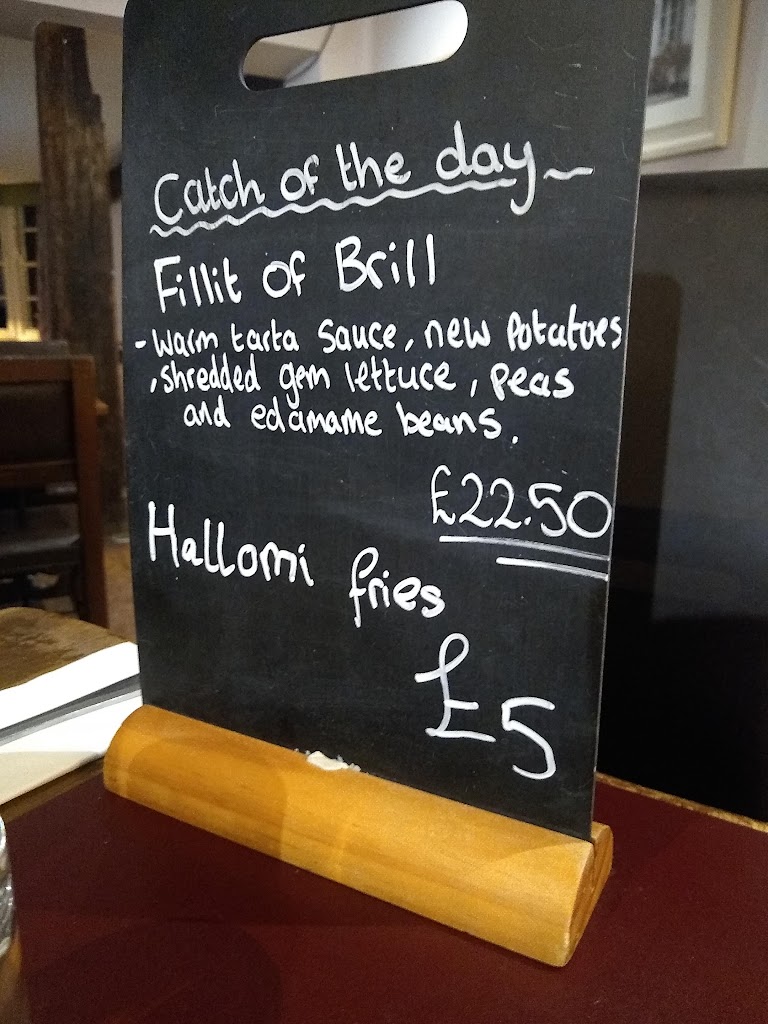 Catch of the day
Fillit of Brill
- Warm tarta sauce, new potatoes
, shredded gem lettuce, peas
and edamame beans.
£22.50
Hallomi fries
£5